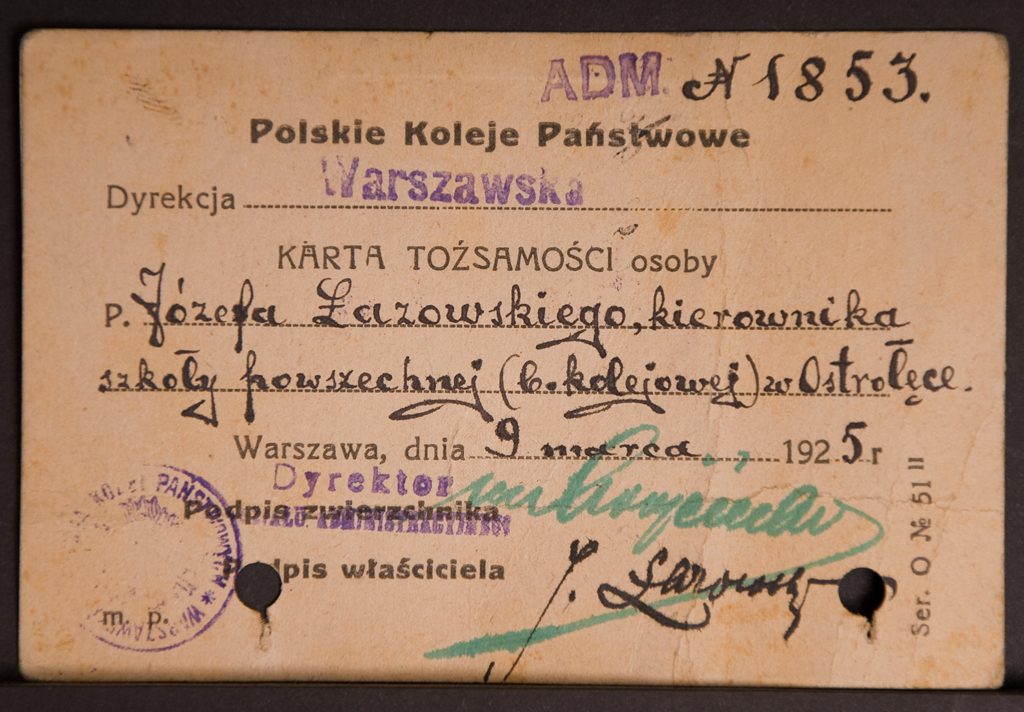 ADM. № 1853.
Polskie Koleje Państwowe
Dyrekcja Warszawska
KARTA TOŻSAMOŚCI osoby
P. Józefa Łazowskiego, kierownika
szkoły powszechnej (b. kolejowej) w Ostrołęce.
Warszawa, dnia 9 marca 1925 r
Dyrektor
Podpis zwierzchnika
ADMINISTRACYJNEGO
dpis właściciela
J. Łazowski
m. p.
KOLEI PAŃSTWOWYCH * WARSZAWA
Ser. O № 51 II